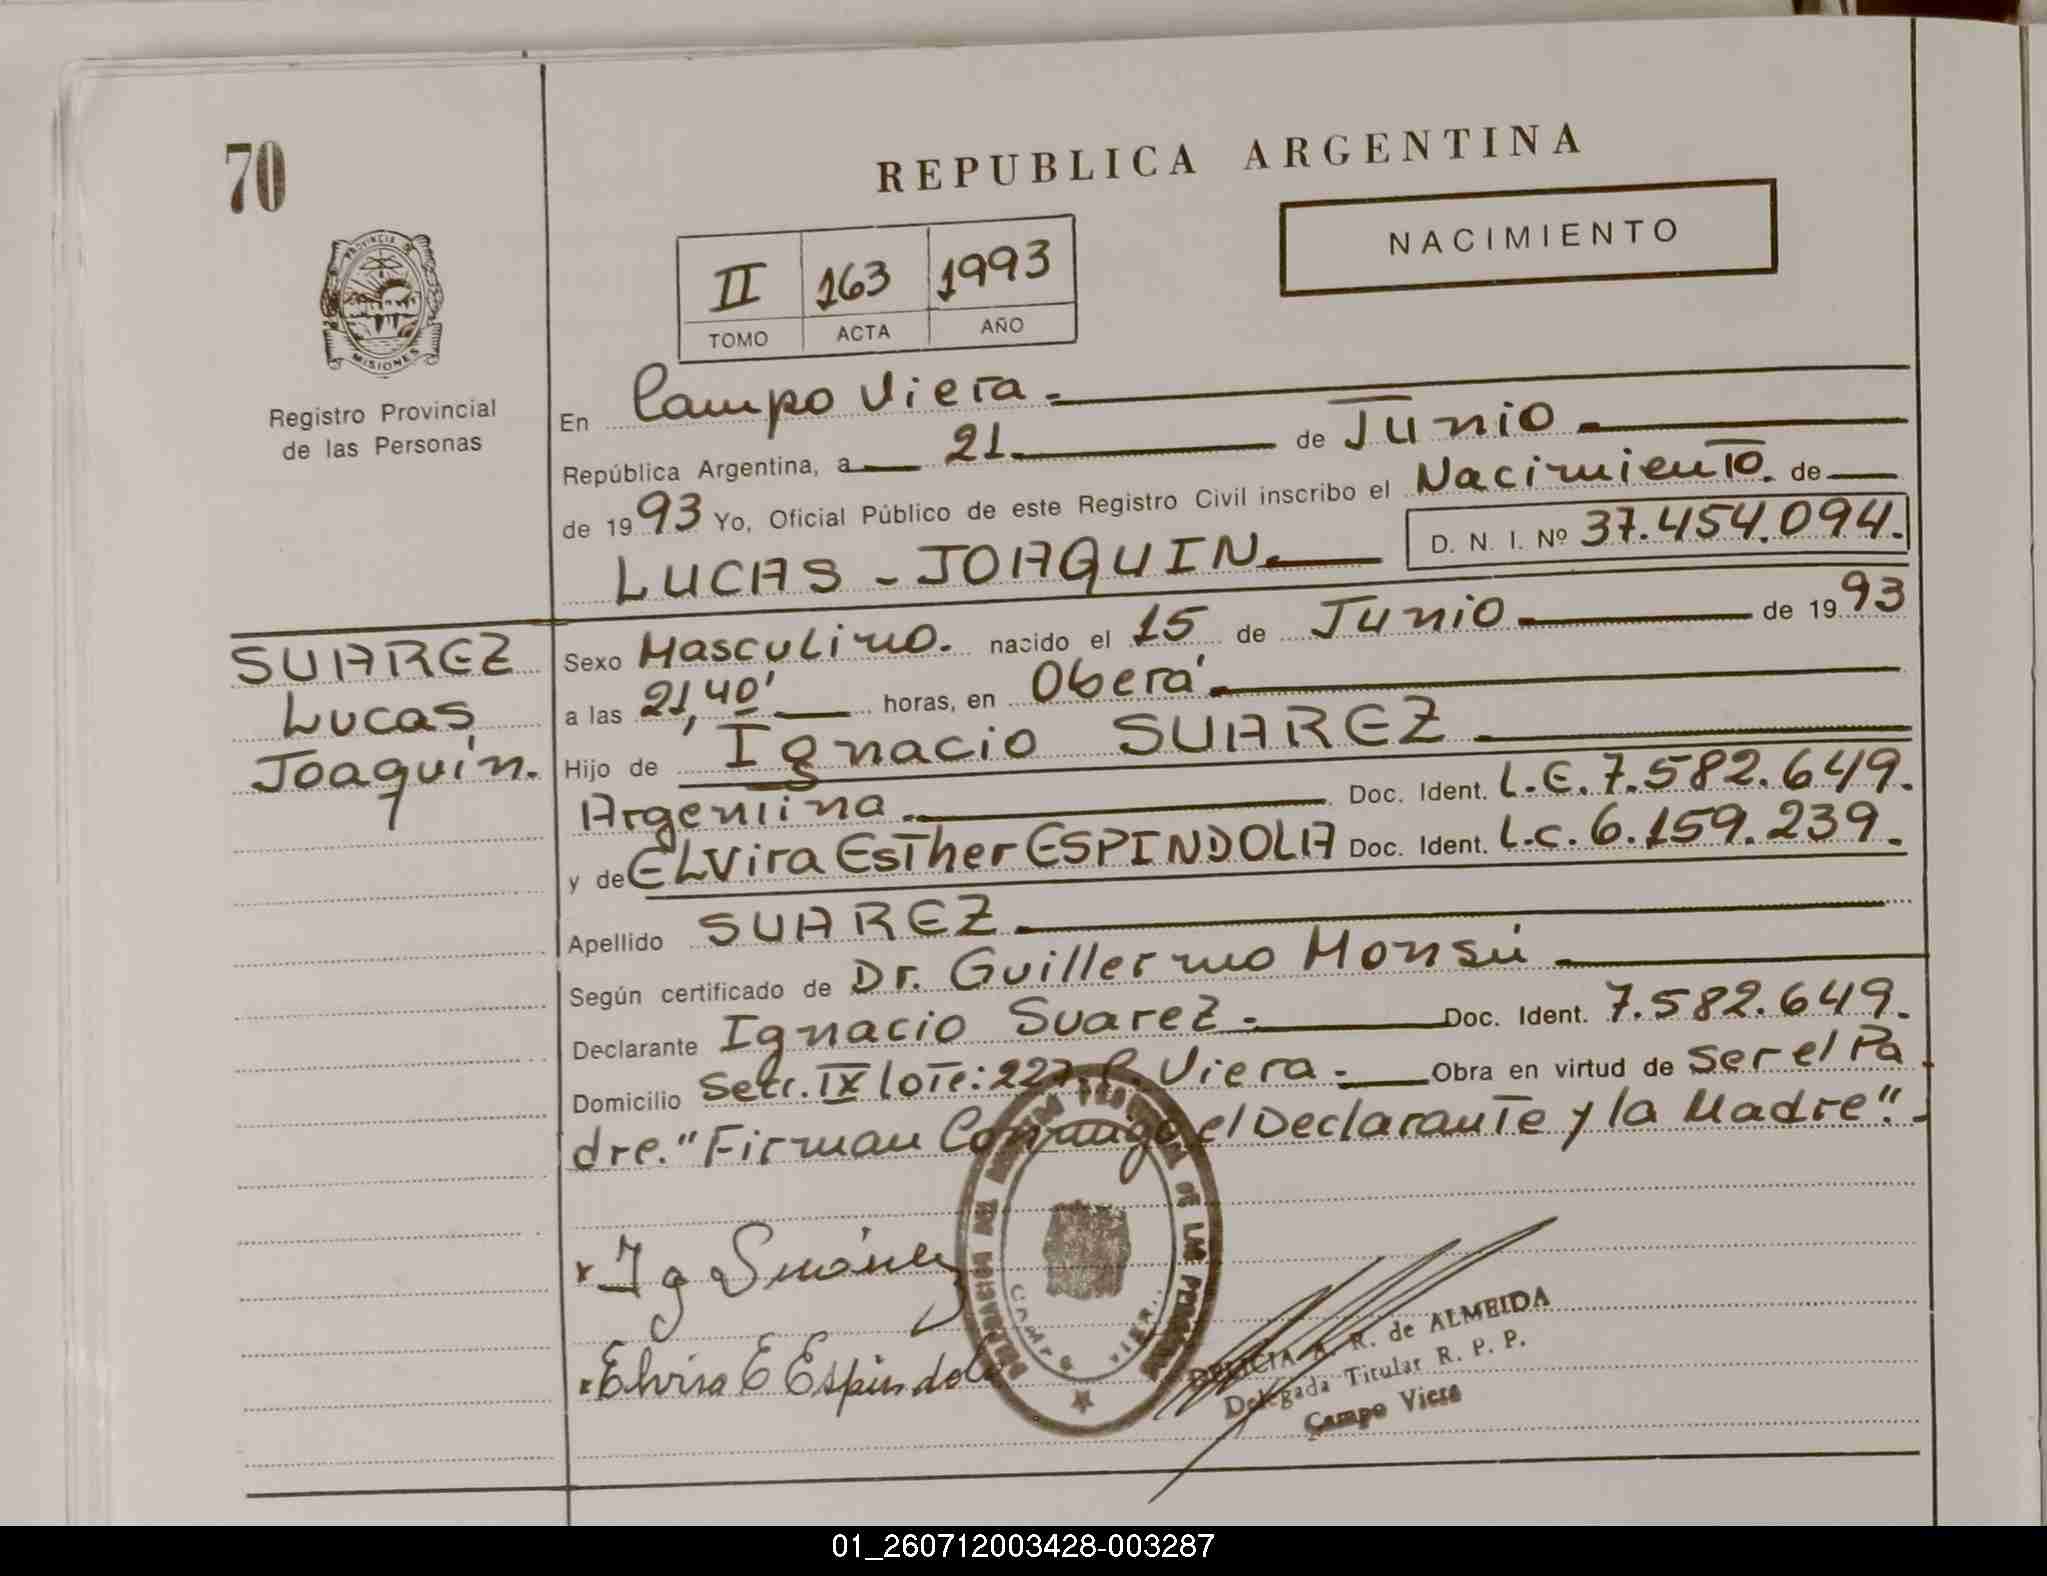 70
REPUBLICA ARGENTINA
NACIMIENTO
II 163 1993
TOMO ACTA AÑO
PROVINCIA DE
MISIONES
Registro Provincial
de las Personas
En Campo Viera.
República Argentina, a 21 de Junio
de 1993 Yo, Oficial Público de este Registro Civil inscribo el Nacimiento. de
LUCAS - JOAQUIN. D. N. I. Nº 37.454.094.
SUAREZ
Lucas
Joaquín.
Sexo Masculino. nacido el 15 de Junio de 1993
a las 21,40' horas, en Oberá.
Hijo de Ignacio SUAREZ
Argentina. Doc. Ident. L.E. 7.582.649.
y de ELVira EsTher ESPINDOLA Doc. Ident. L.C. 6.159.239.
Apellido SUAREZ.
Según certificado de Dr. Guillermo Monsú
Declarante Ignacio Suarez. Doc. Ident. 7.582.649.
Domicilio Secc. IX loTe: 227. C. Viera. Obra en virtud de Ser el Pa
dre. "Firman Conmigo el Declarante y la Madre".
Ig Suárez
Elvira E Espindola
DELEGACION DEL REGISTRO PROVINCIAL DE LAS PERSONAS
CAMPO VIERA
DELICIA A. R. de ALMEIDA
Delegada Titular R. P. P.
Campo Viera
01_260712003428-003287